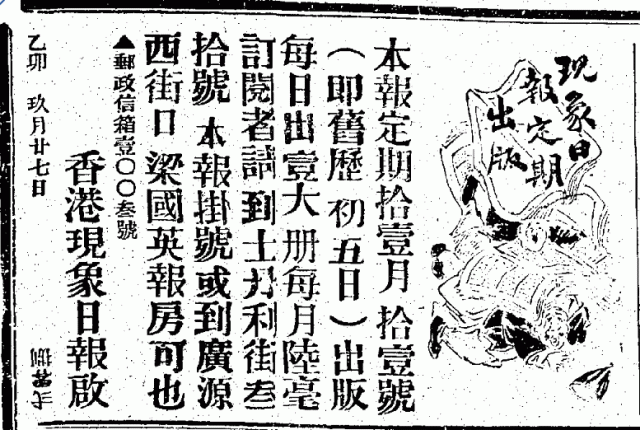 現象日
報定期
出版
本報定期拾壹月拾壹號
（即舊歷初五日）出版
每日出壹大册每月陸毫
訂閱者請到士丹利街叁
拾號本報掛號或到廣源
西街口梁國英報房可也
▲郵政信箱壹〇〇叁號
香港現象日報啟
乙卯 玖月廿七日